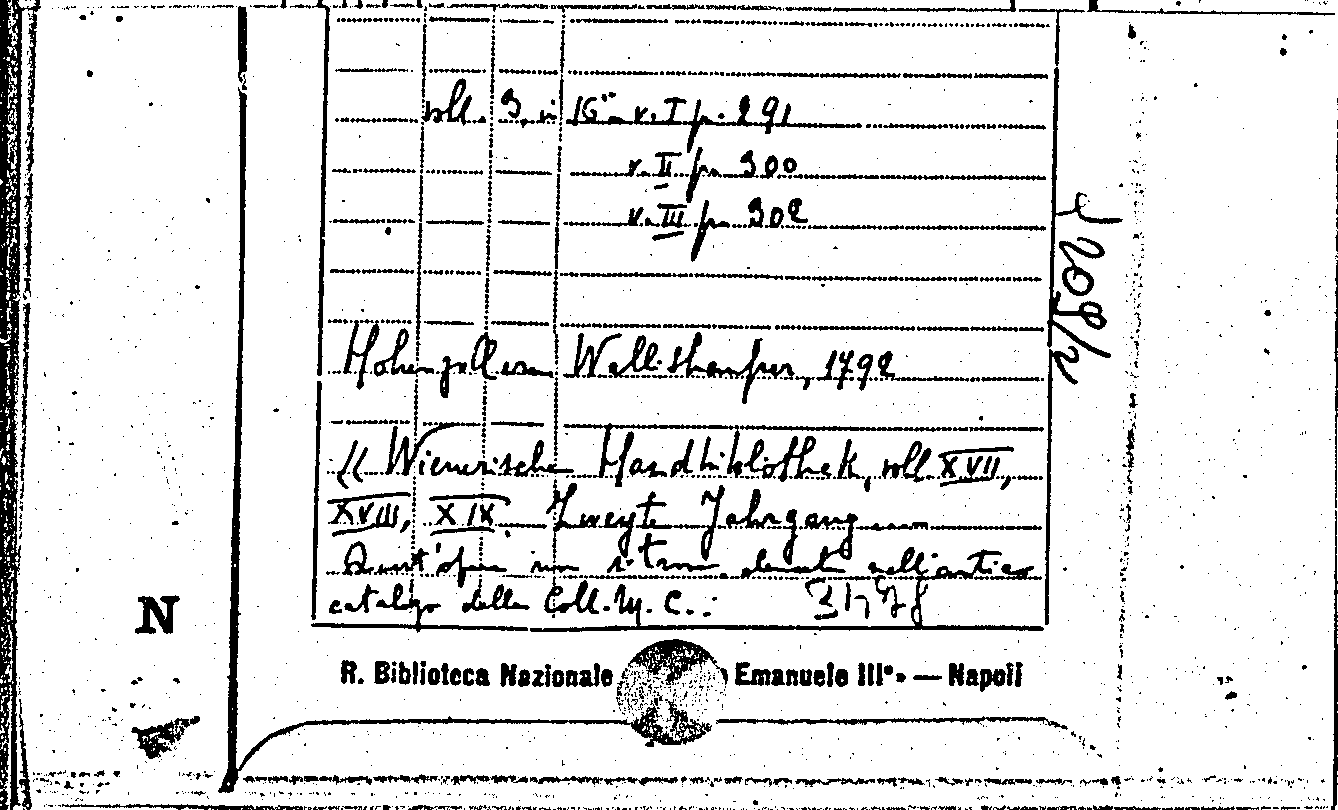 voll. 3, in 16° v. I p. 291
v. II p. 300
v. III p. 302
Hohenzollern Wallishausser, 1792
« Wienerische Handbibliothek, voll. XVII,
XVIII, XIX. Zweyte Jahrgang
Quest'opera non si trova elencata nell'antico
catalogo della Coll. M. C.:
N
R. Biblioteca Nazionale Emanuele III°» — Napoli